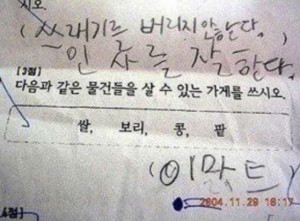 시오.
(쓰레기를 버리지 안한다.
인사를 잘한다.
[3점]
다음과 같은 물건들을 살 수 있는 가게를 쓰시오.
쌀, 보리, 콩, 팥
(이마트)
2004.11.29 16:17
4점]